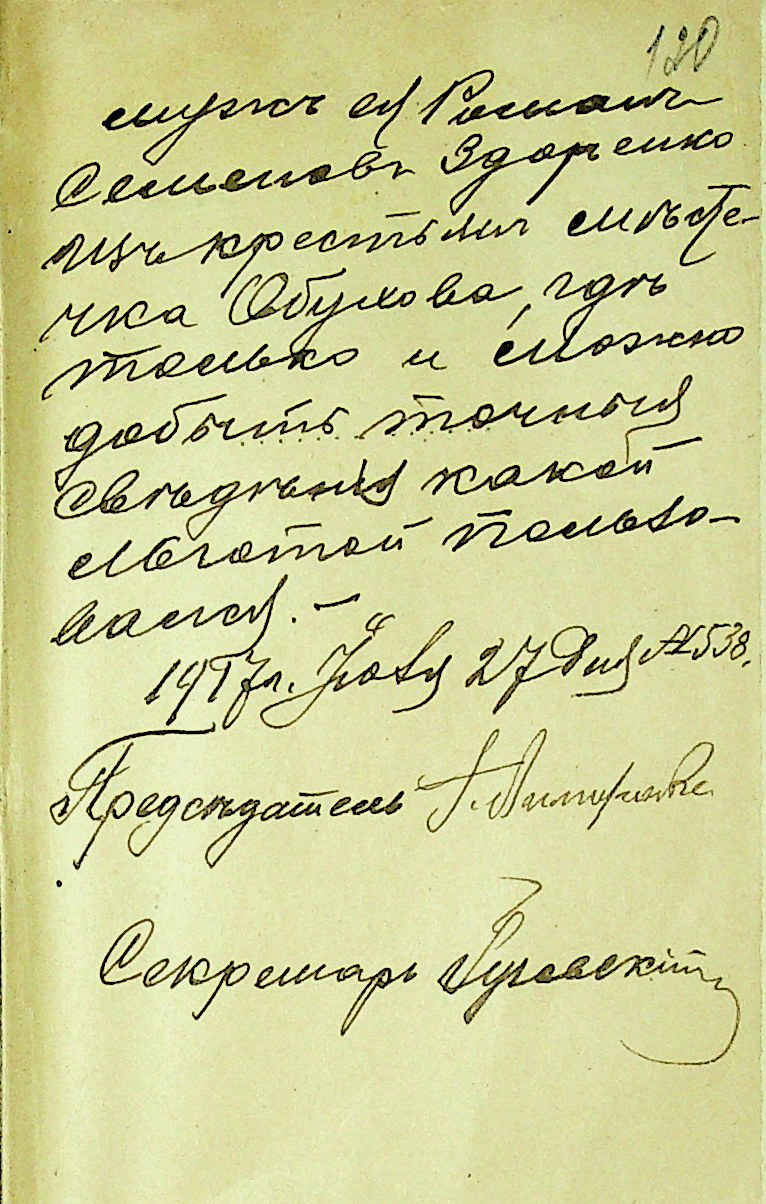 120
мужъ ея Романъ
Семеновъ Здоренко
изъ крестьянъ мѣсте-
чка Обухова, гдѣ
только и можно
добыть точныя
свѣдѣнія какой
льготой пользо-
вался. —
1917 г. Іюля 27 дня № 538.
Предсѣдатель
Секретарь